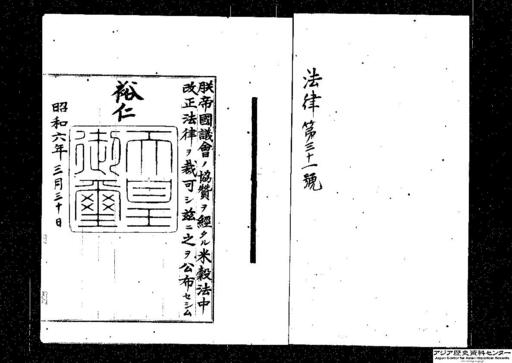 法律第三十一號
朕帝國議會ノ協贊ヲ經タル米穀法中
改正法律ヲ裁可シ茲ニ之ヲ公布セシム
裕仁
天皇
御璽
昭和六年三月三十日
アジア歴史資料センター
Japan Center for Asian Historical Records